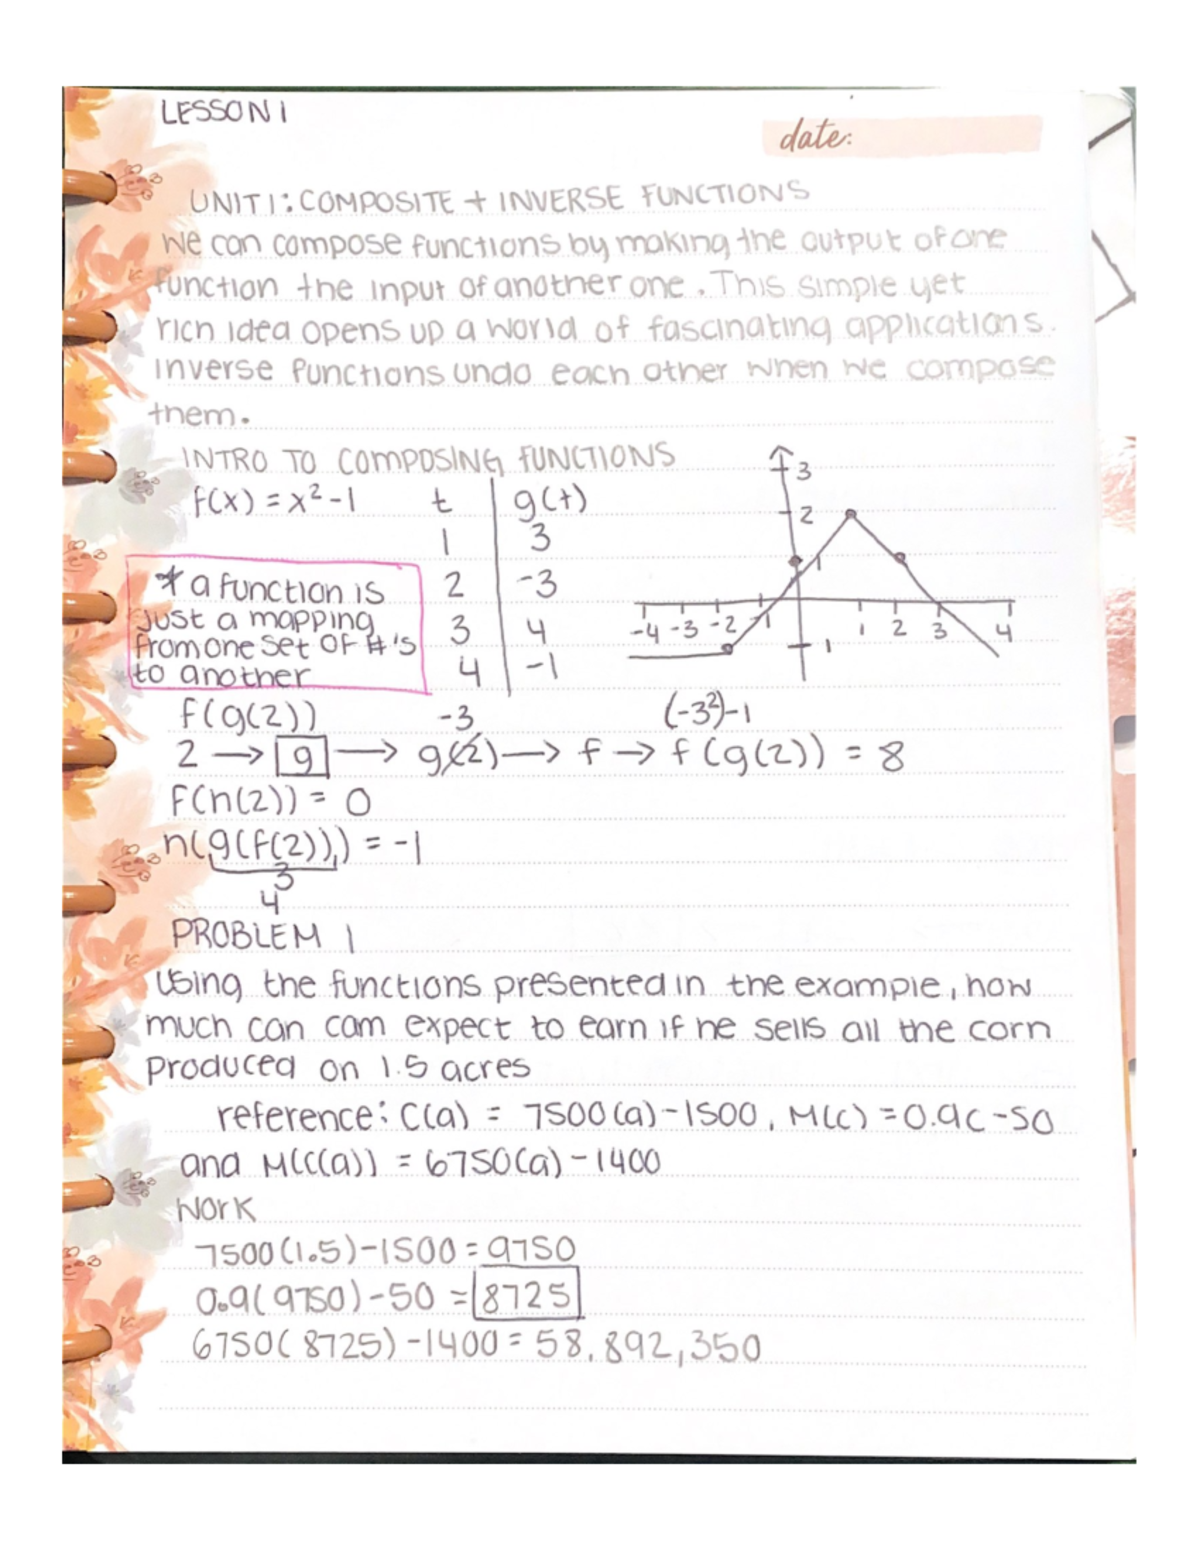 LESSON 1
date:
UNIT 1: COMPOSITE + INVERSE FUNCTIONS
We can compose functions by making the output of one
function the input of another one. This simple yet
rich idea opens up a world of fascinating applications.
Inverse functions undo each other when we compose
them.
INTRO TO COMPOSING FUNCTIONS
f(x) = x²-1
t g(t)
1 3
2 -3
3 4
4 -1
* a function is
just a mapping
from one set of #'s
to another
3
2
1
-4 -3 -2 -1 1 2 3 4
1
f(g(2)) -3 (-3²)-1
2 → g → g(2) → f → f(g(2)) = 8
f(h(2)) = 0
h(g(f(2))) = -1
3
4
PROBLEM 1
Using the functions presented in the example, how
much can cam expect to earn if he sells all the corn
produced on 1.5 acres
reference: C(a) = 7500(a)-1500, M(c) = 0.9c -50
and M(C(a)) = 6750(a)-1400
Work
7500(1.5)-1500 = 9750
0.9(9750)-50 = 8725
6750(8725)-1400 = 58,892,350